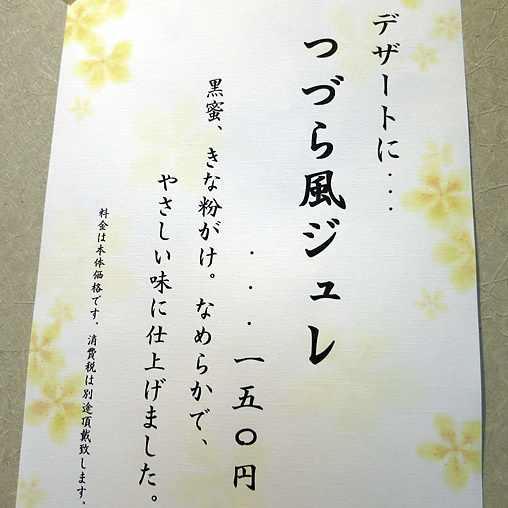 デザートに・・・
つづら風ジュレ
・・・一五〇円
黒蜜、きな粉がけ。なめらかで、
やさしい味に仕上げました。
料金は本体価格です。消費税は別途頂戴致します。